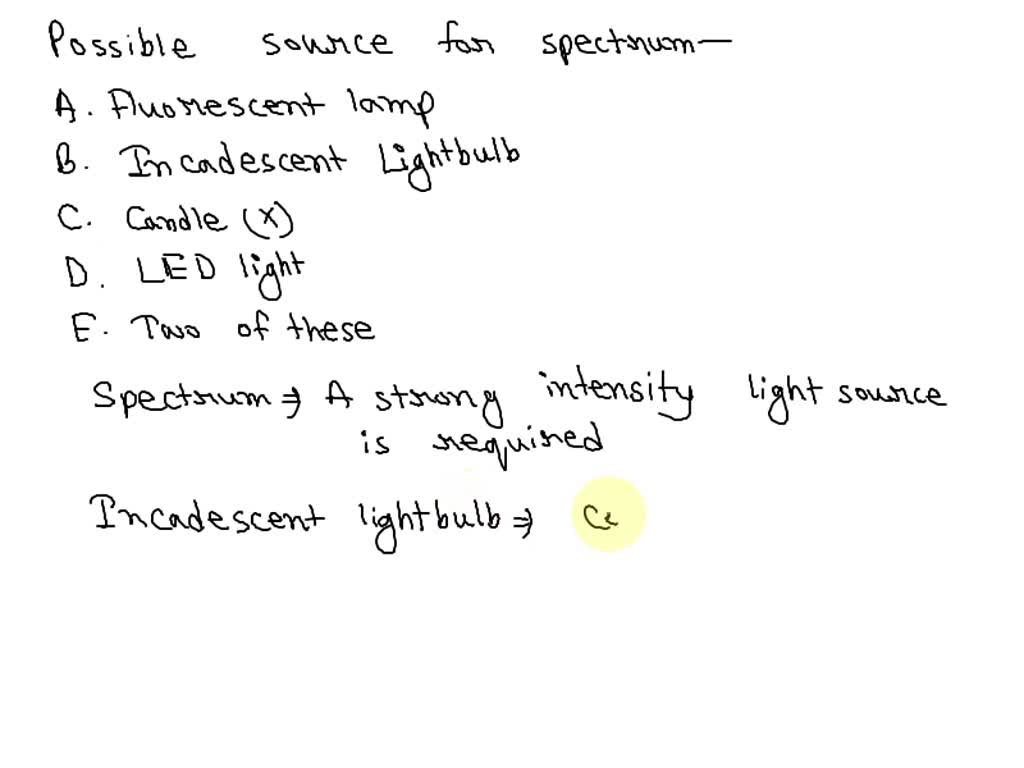 Possible source for spectrum—
A. Fluorescent lamp
B. Incadescent Lightbulb
C. Candle (x)
D. LED light
E. Two of these
Spectrum ⇒ A strong intensity light source
is required
Incadescent lightbulb ⇒